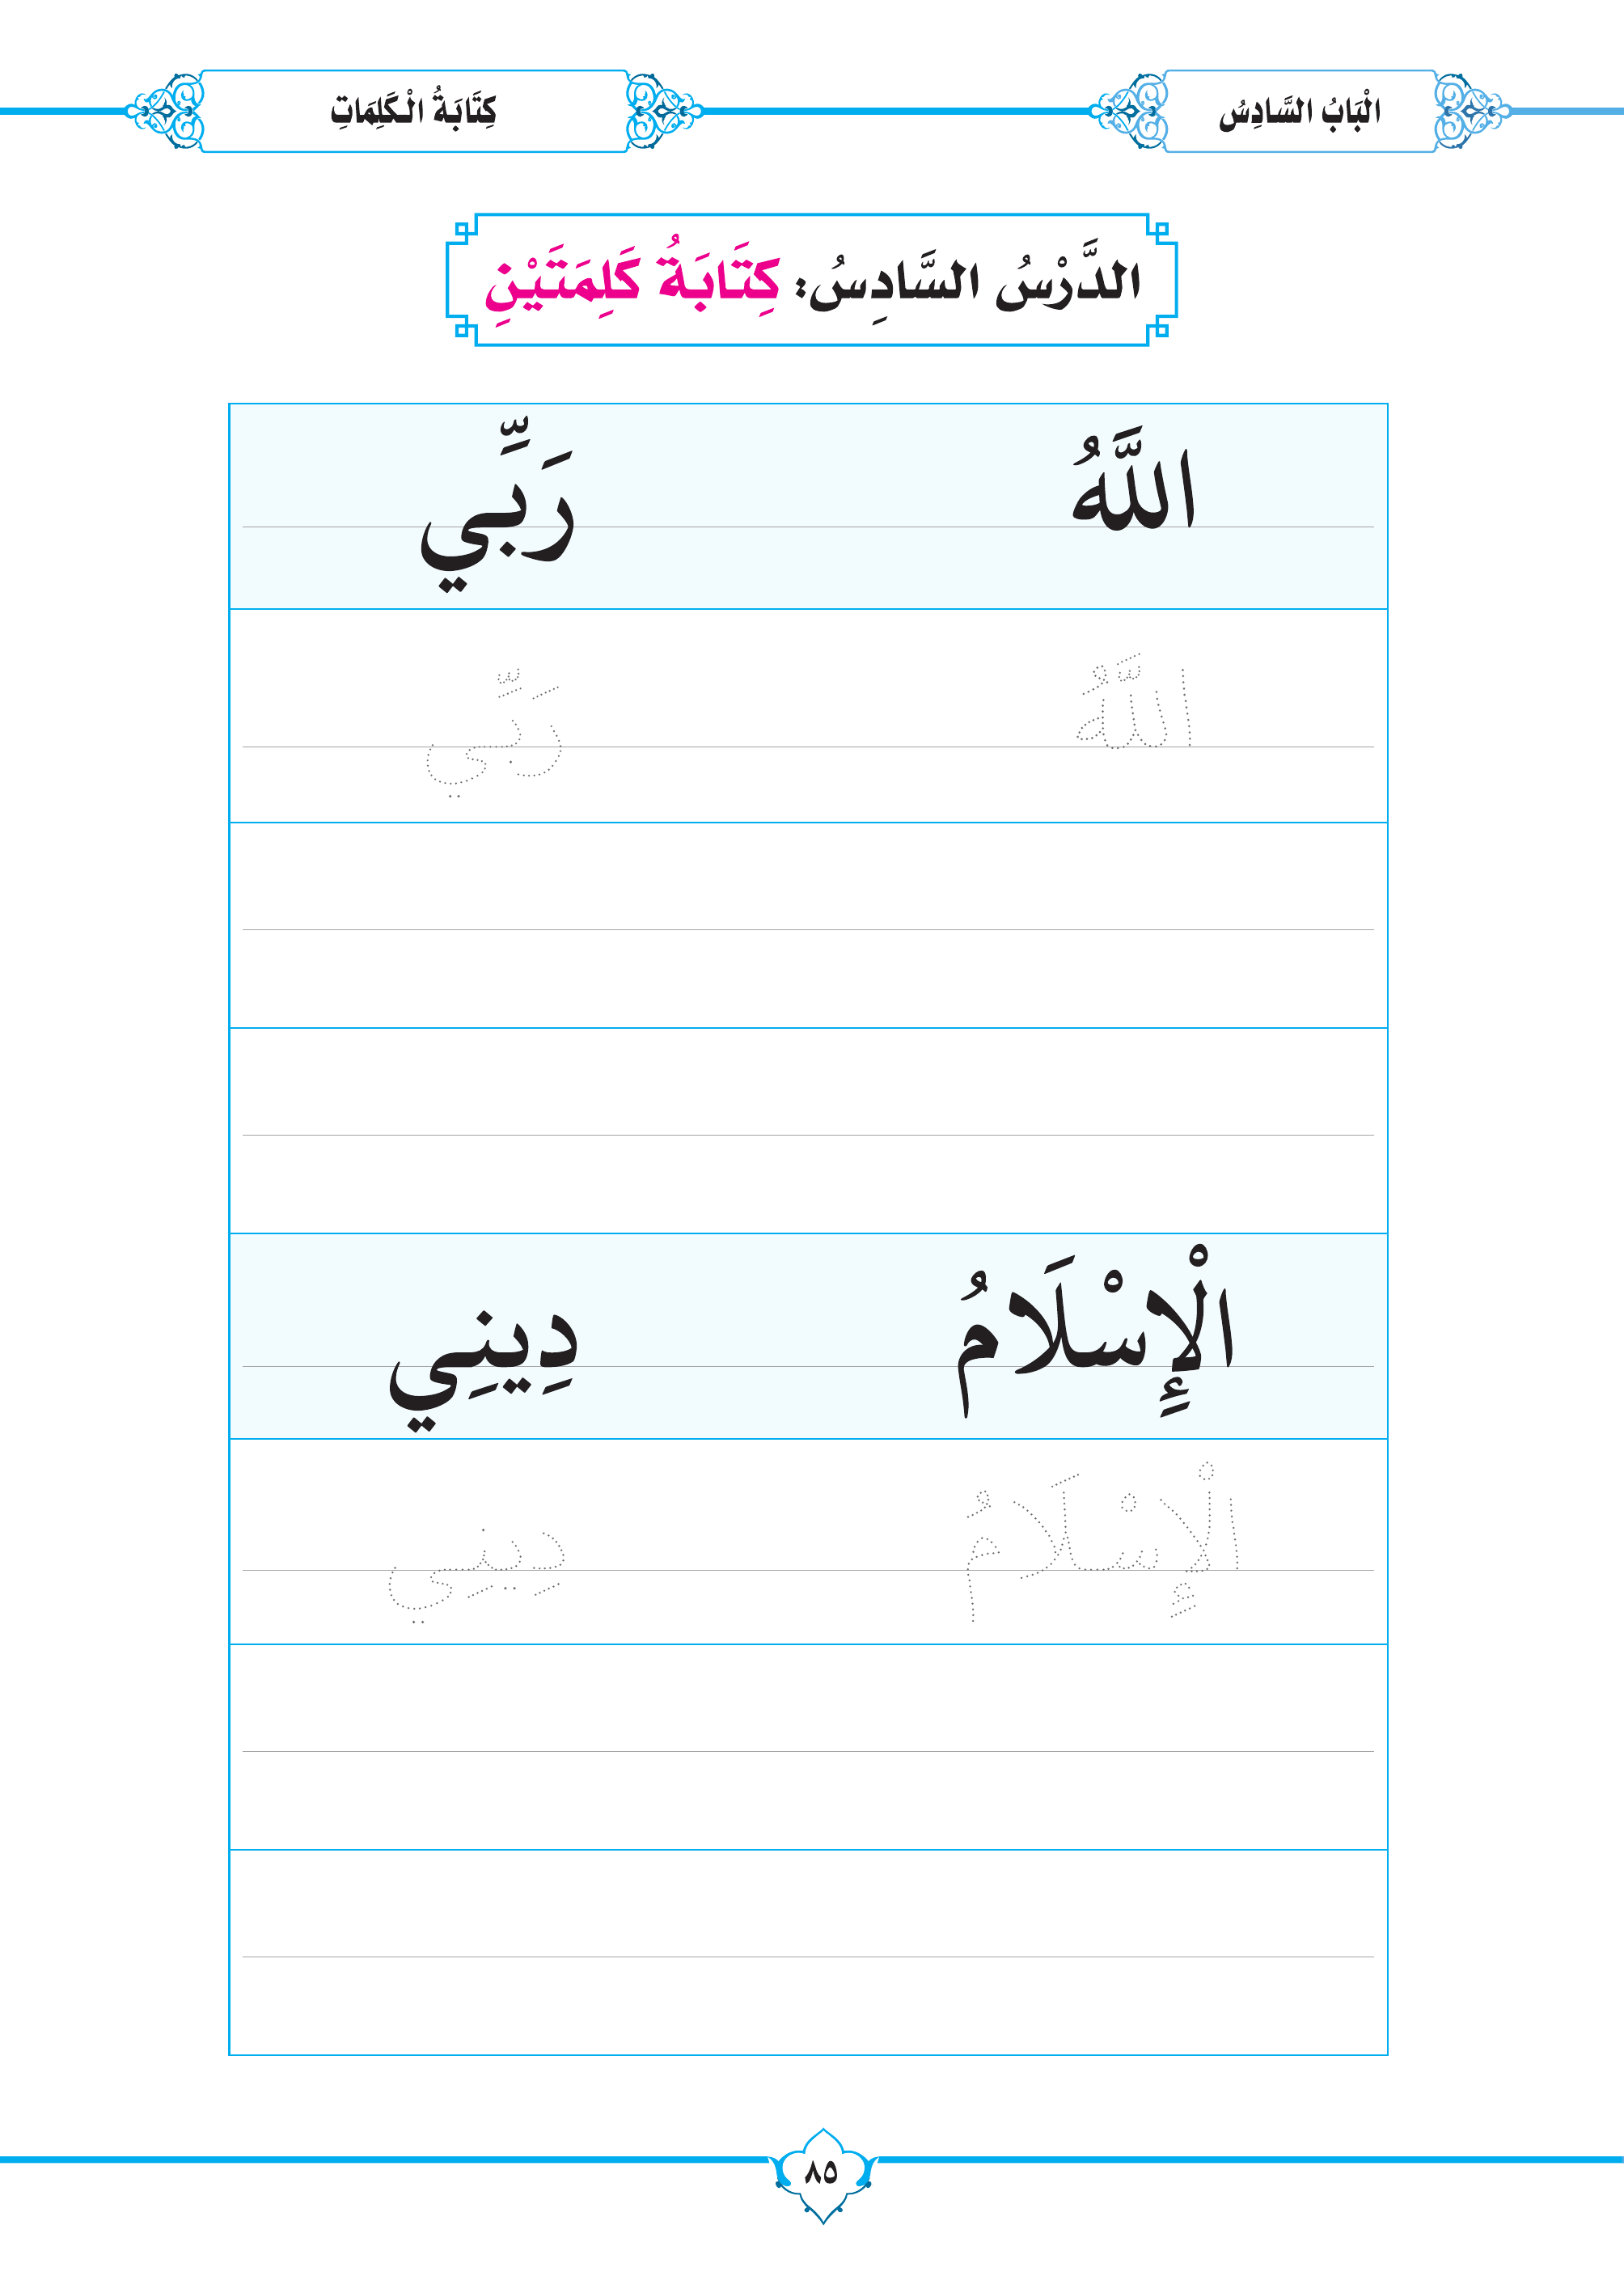 الْبَابُ السَّادِسُ كِتَابَةُ الْكَلِمَاتِ
الدَّرْسُ السَّادِسُ: كِتَابَةُ كَلِمَتَيْنِ
اللَّهُ رَبِّي
اللَّهُ رَبِّي
الْإِسْلَامُ دِينِي
الْإِسْلَامُ دِينِي
٨٥